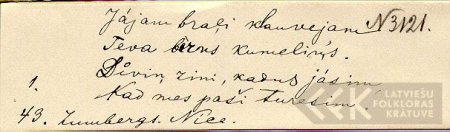 Jājam braļi klauvejam N3121.
Teva bērns kumeliņš.
Diviņ zini, kadus jāsim
1.
Kad mes paši turesim.
43. Zumbergs. Nīce.
LATVIEŠU
FOLKLORAS
KRĀTUVE